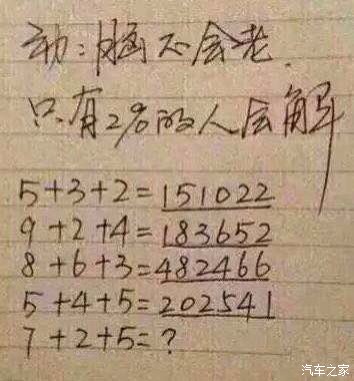 动:脑不会老.
只有2%的人会解
5+3+2=151022
9+2+4=183652
8+6+3=482466
5+4+5=202541
7+2+5=?
汽车之家